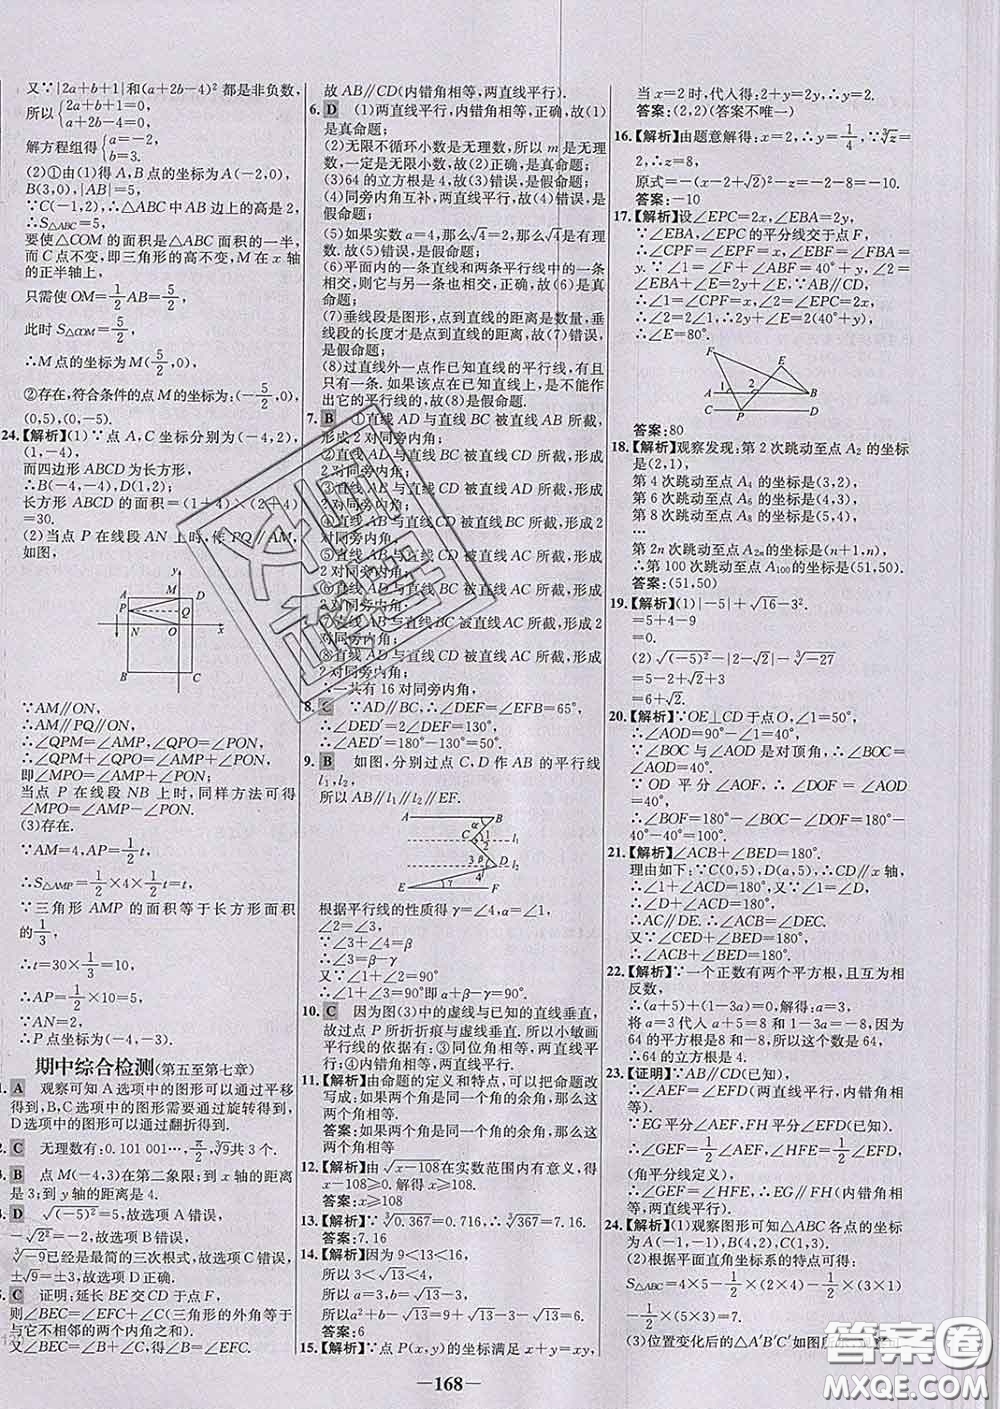 又∵|2a+b+1|和(a+2b-4)²都是非负数,
所以{2a+b+1=0,
a+2b-4=0,
解方程组得{a=-2,
b=3.
(2)①由(1)得A,B点的坐标为A(-2,0),
B(3,0),|AB|=5,
∵C(-1,2),∴△ABC中AB边上的高是2,
∴S△ABC=5,
要使△COM的面积是△ABC面积的一半,
而C点不变,即三角形的高不变,M在x轴
的正半轴上,
只需使OM=1/2AB=5/2,
此时S△COM=5/2,
∴M点的坐标为M(5/2,0),
②存在,符合条件的点M的坐标为:(-5/2,0),
(0,5),(0,-5).
24.【解析】(1)∵点A,C坐标分别为(-4,2),
(1,-4),
而四边形ABCD为长方形,
∴B(-4,-4),D(1,2);
长方形ABCD的面积=(1+4)×(2+4)
=30.
(2)当点P在线段AN上时,作PQ∥AM,
如图,
y
A M D
P Q
N O x
B C
∵AM∥ON,
∴AM∥PQ∥ON,
∴∠QPM=∠AMP,∠QPO=∠PON,
∴∠QPM+∠QPO=∠AMP+∠PON,
即∠MPO=∠AMP+∠PON;
当点P在线段NB上时,同样方法可得
∠MPO=∠AMP-∠PON.
(3)存在.
∵AM=4,AP=1/2t,
∴S△AMP=1/2×4×1/2t=t,
∵三角形AMP的面积等于长方形面积
的1/3,
∴t=30×1/3=10,
∴AP=1/2×10=5,
∵AN=2,
∴P点坐标为(-4,-3).
期中综合检测(第五至第七章)
1. A 观察可知A选项中的图形可以通过平移
得到,B,C选项中的图形需要通过旋转得到,
D选项中的图形可以通过翻折得到.
2. C 无理数有:0.101 001…,π/2,∛9共3个.
3. B 点M(-4,3)在第二象限;到x轴的距离
是3;到y轴的距离是4.
4. D √(-5)²=5,故选项A错误,
-√2²=-2,故选项B错误,
∛-9已经是最简的三次根式,故选项C错误,
±√9=±3,故选项D正确.
5. C 证明:延长BE交CD于点F,
则∠BEC=∠EFC+∠C(三角形的外角等于
与它不相邻的两个内角之和).
又∠BEC=∠B+∠C,得∠B=∠EFC.
故AB∥CD(内错角相等,两直线平行).
6. D (1)两直线平行,内错角相等,正确,故(1)
是真命题;
(2)无限不循环小数是无理数,所以m是无理
数,一定是无限小数,故(2)正确,是真命题;
(3)64的立方根是4,故(3)错误,是假命题;
(4)同旁内角互补,两直线平行,故(4)错误,是
假命题;
(5)如果实数a=4,那么√4=2,那么√4是有理
数,故(5)错误,是假命题;
(6)平面内的一条直线和两条平行线中的一条
相交,则它与另一条也相交,故(6)是真命题;
(7)垂线段是图形,点到直线的距离是数量,垂
线段的长度才是点到直线的距离,故(7)错误,
是假命题;
(8)过直线外一点作已知直线的平行线,有且
只有一条.如果该点在已知直线上,则不能作
出它的平行线,故(8)是假命题.
7. B ①直线AD与直线BC被直线AB所截,
形成2对同旁内角;
②直线AD与直线BC被直线CD所截,形成
2对同旁内角;
③直线AD与直线BC被直线AC所截,形成
2对同旁内角;
④直线AB与直线CD被直线BC所截,形成2
对同旁内角;
⑤直线AB与直线CD被直线AD所截,形成
2对同旁内角;
⑥直线AB与直线CD被直线AC所截,形成
2对同旁内角;
⑦直线AB与直线BC被直线AC所截,形成2
对同旁内角;
⑧直线AD与直线CD被直线AC所截,形成
2对同旁内角;
∴一共有16对同旁内角,
8. C ∵AD∥BC,∴∠DEF=∠EFB=65°,
∴∠DED′=2∠DEF=130°,
∴∠AED′=180°-130°=50°.
9. B 如图,分别过点C,D作AB的平行线
l₁,l₂,
所以AB∥l₁∥l₂∥EF.
A B
α 1
C 2 l₁
3 β D l₂
4
E γ F
根据平行线的性质得γ=∠4,α=∠1,
∠2=∠3,
∵∠3+∠4=β
∴∠2+γ=β
又∵∠1+∠2=90°
∴∠1+∠3=90°即α+β-γ=90°.
10. C 因为图(3)中的虚线与已知的直线垂直,
故过点P所折折痕与虚线垂直.所以小敏画
平行线的依据有:③同位角相等,两直线平
行;④内错角相等,两直线平行.
11.【解析】由命题的定义和特点,可以把命题
改写成:如果两个角是同一个角的余角,那么
这两个角相等.
答案:如果两个角是同一个角的余角,那么这
两个角相等
12.【解析】由√x-108在实数范围内有意义,得
x-108≥0.解得x≥108.
答案:x≥108
13.【解析】∵∛0.367=0.716,∴∛367=7.16.
答案:7.16
14.【解析】因为9<13<16,
所以3<√13<4,
所以a=√13-3,b=3,
所以a²+b-√13=9+√13-3-√13=6.
答案:6
15.【解析】∵点P(x,y)的坐标满足x+y=xy,
当x=2时,代入得:2+y=2y,∴y=2.
答案:(2,2)(答案不唯一)
16.【解析】由题意解得:x=2,∴y=1/4,∵∛z=
2,∴z=8,
原式=-(x+√2)²-z=-2-8=-10.
答案:-10
17.【解析】设∠EPC=2x,∠EBA=2y,
∵∠EBA,∠EPC的平分线交于点F,
∴∠CPF=∠EPF=x,∠EBF=∠FBA=
y.∵∠1=∠F+∠ABF=40°+y,∠2=
∠EBA+∠E=2y+∠E,∵AB∥CD,
∴∠1=∠CPF=x,∠2=∠EPC=2x,
∴∠2=2∠1,∴2y+∠E=2(40°+y),
∴∠E=80°.
F E
A 1 2 B
C P D
答案:80
18.【解析】观察发现:第2次跳动至点A₂的坐标
是(2,1),
第4次跳动至点A₄的坐标是(3,2),
第6次跳动至点A₆的坐标是(4,3),
第8次跳动至点A₈的坐标是(5,4),
…
第2n次跳动至点A₂ₙ的坐标是(n+1,n),
∴第100次跳动至点A₁₀₀的坐标是(51,50).
答案:(51,50)
19.【解析】(1)|-5|+√16-3².
=5+4-9
=0.
(2)√(-5)²-|2-√2|-∛-27
=5-2+√2+3
=6+√2.
20.【解析】∵OE⊥CD于点O,∠1=50°,
∴∠AOD=90°-∠1=40°,
∵∠BOC与∠AOD是对顶角,∴∠BOC=
∠AOD=40°.
∵OD平分∠AOF,∴∠DOF=∠AOD
=40°,
∴∠BOF=180°-∠BOC-∠DOF=180°
-40°-40°=100°.
21.【解析】∠ACB+∠BED=180°.
理由如下:∵C(0,5),D(a,5),∴CD∥x轴,
∴∠CDA=∠DAB.
∵∠1+∠2=180°,∠1+∠DAE=180°,
∴∠2=∠DAE,
∴AC∥DE.∴∠ACB=∠DEC.
又∵∠CED+∠BED=180°,
∴∠ACB+∠BED=180°.
22.【解析】∵一个正数有两个平方根,且互为相
反数,
∴(a+5)+(1-3a)=0,解得:a=3,
将a=3代入a+5=8和1-3a=-8,
所以这个正数的两个平方根为8和-8,这个
正数为64.
23.【证明】∵AB∥CD(已知),
∴∠AEF=∠EFD(两直线平行,内错角
相等).
∵EG平分∠AEF,FH平分∠EFD(已知).
∴∠GEF=1/2∠AEF,∠HFE=1/2∠EFD,
(角平分线定义)
∴∠GEF=∠HFE,∴EG∥FH(内错角相等,
两直线平行).
24.【解析】(1)观察图形可知△ABC各点的坐标
为A(-1,-1),B(4,2),C(1,3).
(2)根据平面直角坐标系的特点可得:
S△ABC=4×5-1/2×(2×4)-1/2×(1×3)
-1/2×(5×3)=7.
(3)位置变化后的△A′B′C′如图
—168—
答案圈
MXQE.COM